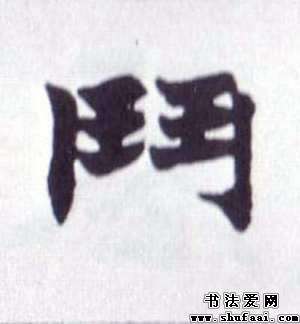 鬥
书法爱网
www.shufaai.com